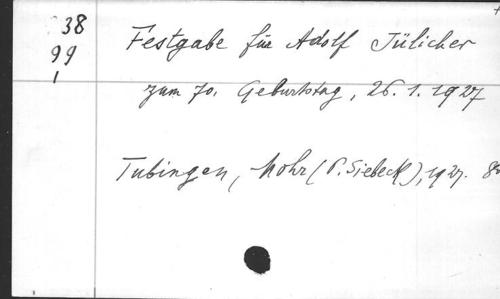 38
99
Festgabe für Adolf Jülicher
zum 70. Geburtstag, 26. 1. 1927
Tübingen, Mohr (P. Siebeck), 1927. 8o